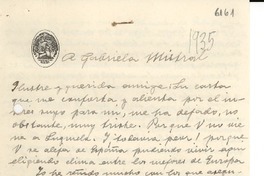 6161
1935
A Gabriela Mistral
Ilustre y querida amiga: Su carta
que me conforta y alienta por el in-
terés suyo para mí, me ha dejado, no
obstante, muy triste. Porque V no vie-
ne a Laguela. Y todavía peor! porque
V se aleja de España pudiendo vivir aquí
eligiendo clima entre los mejores de Europa.
Yo he soñado mucho con los que